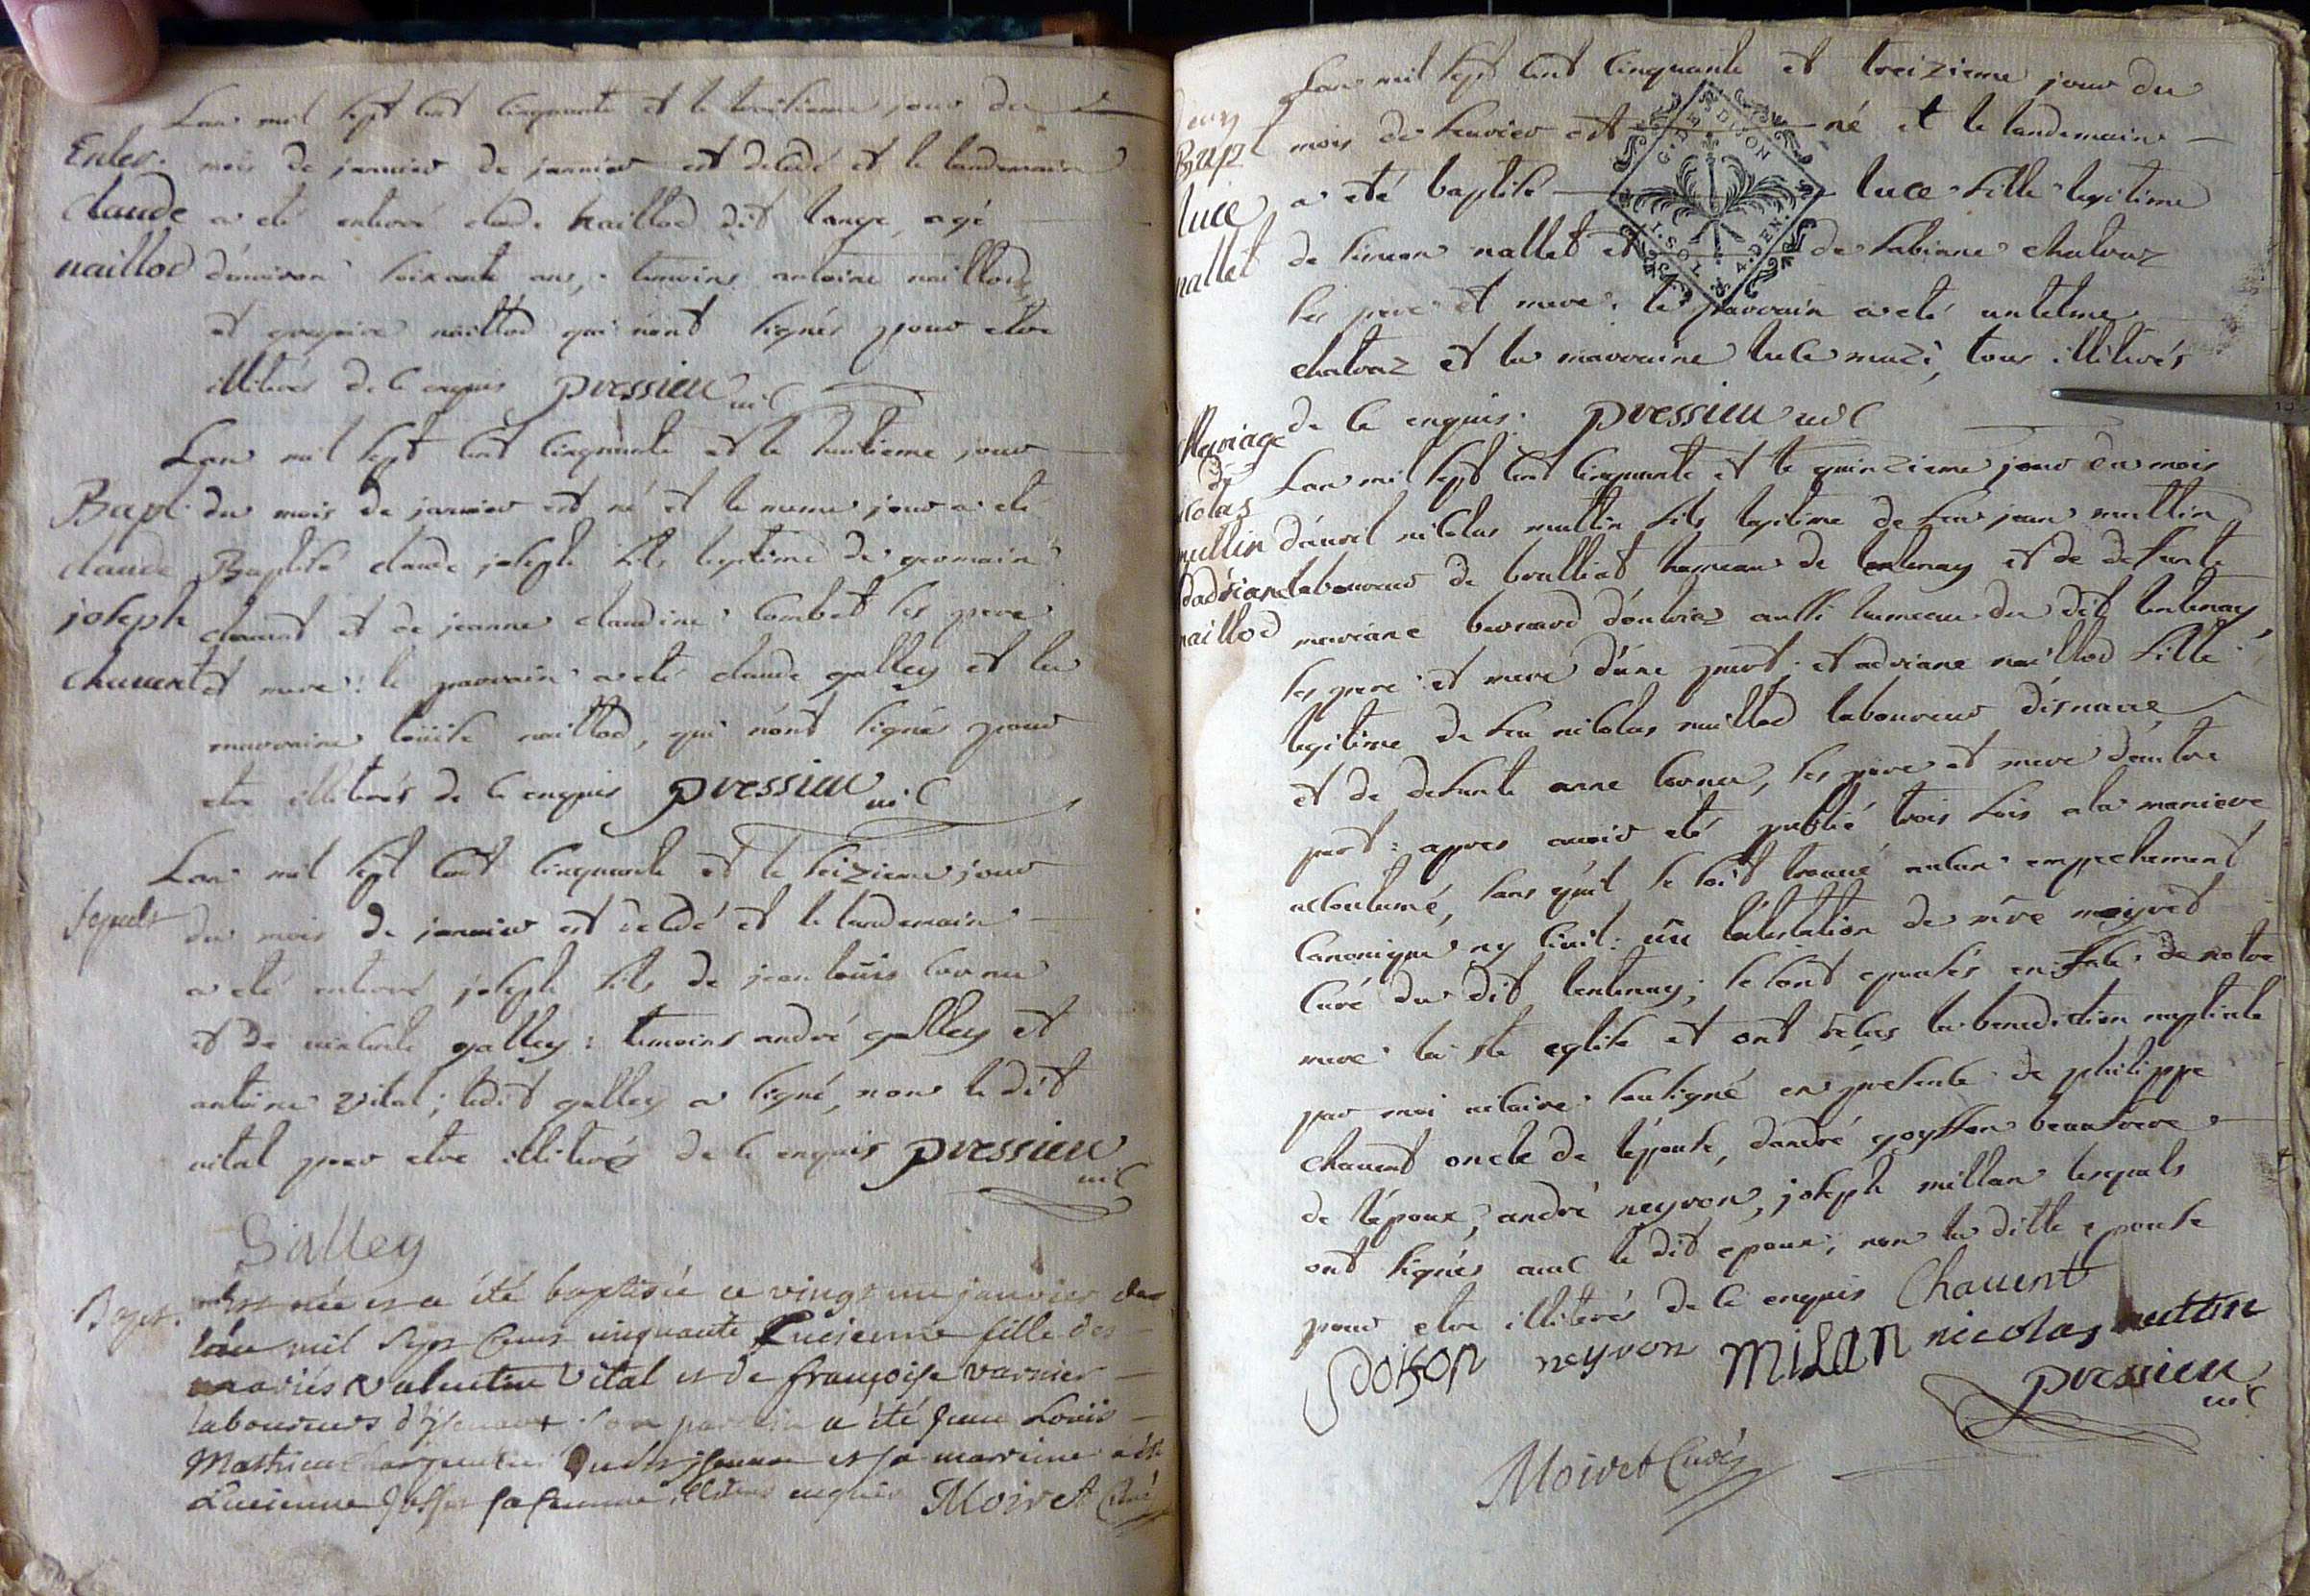 Lan mil sept cent cinquante et le troisieme jour du
Enter. mois de janvier de janvier est decedé et le landemain
claude a eté enterré claude naillod dit lange, agé
naillod d'énviron soixante ans, temoins antoine naillod
et gregoire naillod qui nónt signés pour etre
illiterés de ce enquis pressieu vic
Lan mil sept cent cinquante et le huitieme jour
Bapt. du mois de janvier est né et le meme jour a eté
claude Baptisé claude joseph fils legitime de germain
joseph chauent et de jeanne claudine Combet ses pere
chauent et mere: le parrain a eté claude galley et la
marraine loüise naillod, qui nónt signés pour
etre illiterés de ce enquis pressieu vic
Lan mil sept cent cinquante et le seizieme jour
sepult du mois de janvier est decedé et le landemain
a eté enterré joseph fils de jean loüis cornu
et de galley: temoins andré galley et
antoine vital; ledit galley a signé, non le dit
vital pour etre illiterés de ce enquis pressieu
vic
Galley
Bapt. Est née et a été baptisée ce vingt un janvier
lan mil sept cens cinquante Lucienne fille des
mariés valentin vital et de françoise varnier
laboureurs d'jsenave son parrain a été jean Louis
Mathieu et sa marrine a été
Lucienne sa femme illiterés enquis Moiret Curé
Lan mil sept cent cinquante et treizieme jour du
Bapt mois de feuvrier est né et le landemain
luce a eté baptisé luce fille legitime
nallet de simeon nallet et de fabiane chatraz
ses pere et mere: le parrain a eté antelme
chatraz et la marraine luce mazi, tous illiterés
de ce enquis: pressieu vic
G. D. DIJON
I. SOL. 4. DEN.
Mariage
de Lan mil sept cent cinquante et le quinzieme jour du mois
colas d'avril nicolas muttin fils legitime de feu jean muttin
muttin laboureur de brulliat hameau de lentenay et de defunte
dadriane mariane bernard d'outriaz aussi hameau du dit lentenay,
naillod ses pere et mere d'une part; et adriane naillod fille
legitime de feu nicolas naillod laboureur d'isnave
et de defunte anne cornu, ses pere et mere d'autre
part: apres avoir eté publié trois fois a la maniere
accoutumé, sans qu'il se soit trouué aucun empechement
canonique ny ciuil: vu l'atestation de mre moyret
curé du dit lentenay; se sont epousés en face de notre
mere la ste eglise et ont reçus la benediction nuptiale
par moi vicaire soussigné en presence de philippe
chauent oncle de lépouse, dandré goyffon beaufrere
de lépoux, andré neyron, joseph millan lesquels
ont signés avec le dit epoux, non la ditte epouse
pour etre illiterés de ce enquis Chauent
neyron MiLAN nicolas muttin
pressieu
vic
Moiret Curé